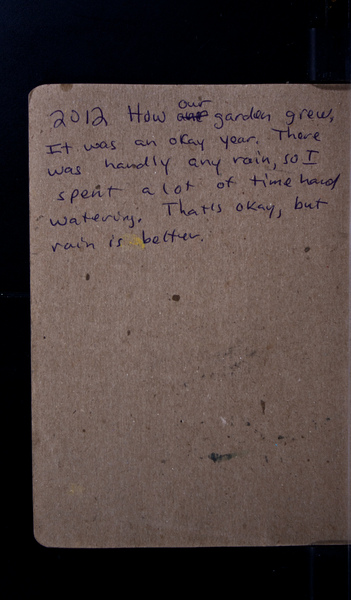 2012 How our garden grew,
It was an okay year. There
was handly any rain, so I
spent a lot of time hand
watering. That's okay, but
rain is better.